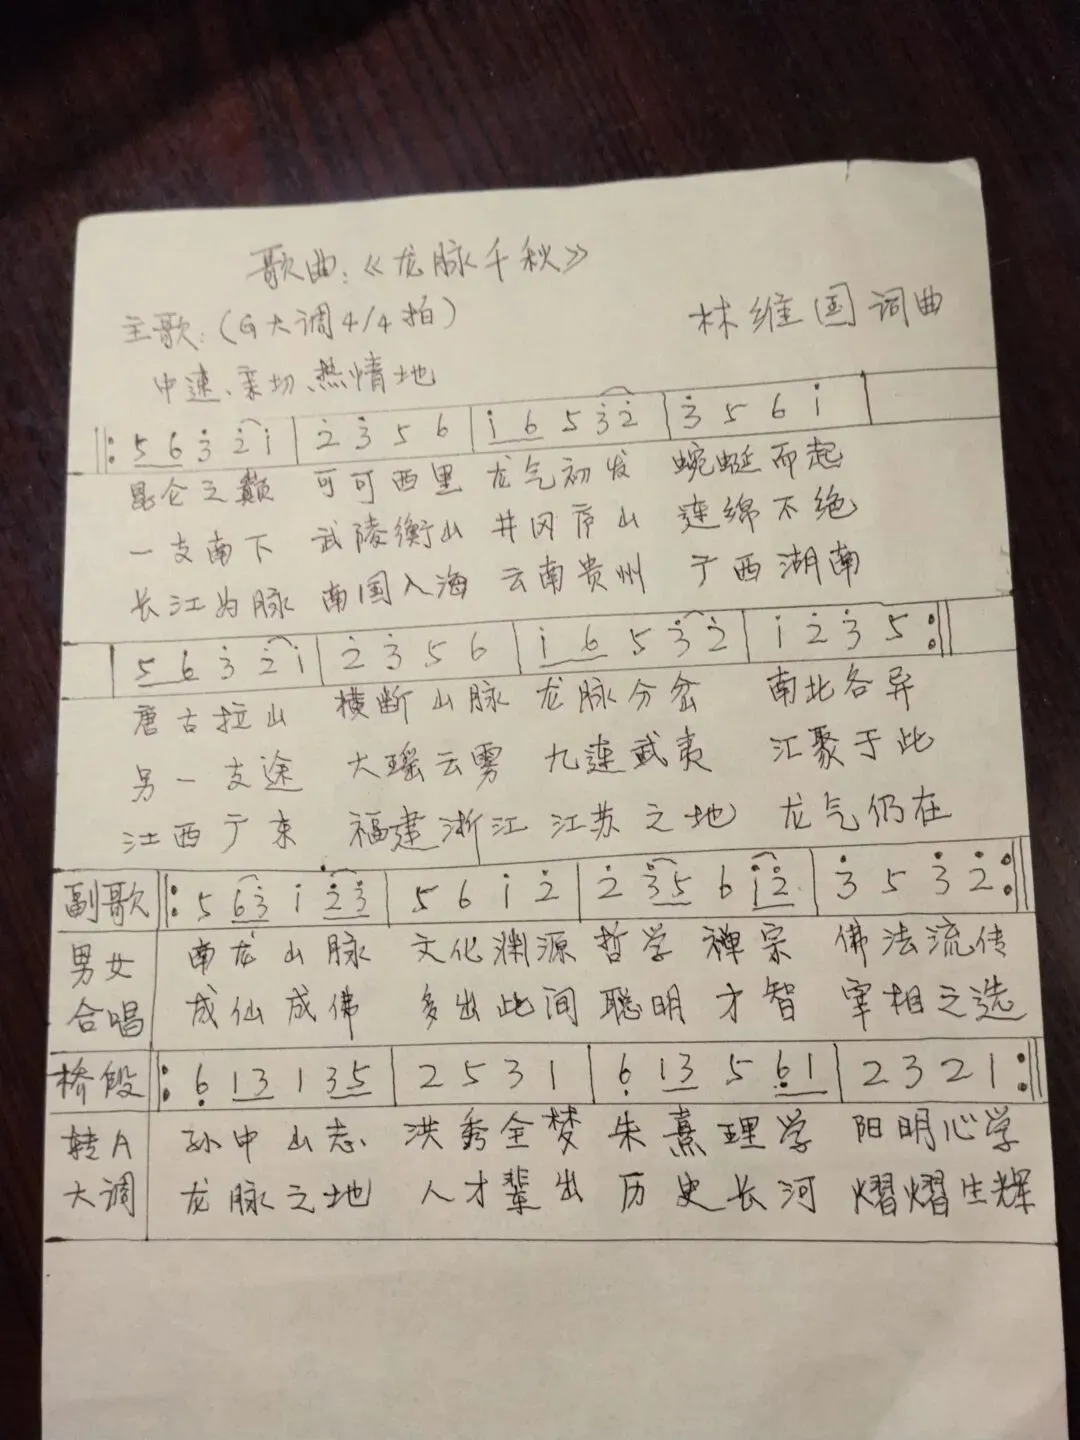 歌曲:《龙脉千秋》
主歌:(G大调4/4拍) 林维国词曲
中速、亲切、热情地
‖: 5 6 3̇ 2̇ 1̇ | 2̇ 3̇ 5 6 | 1̇ 6 5 3̇ 2̇ | 3̇ 5 6 1̇ |
昆仑之巅 可可西里 龙气初发 蜿蜒而起
一支南下 武陵衡山 井冈庐山 连绵不绝
长江为脉 南国入海 云南贵州 广西湖南
| 5 6 3̇ 2̇ 1̇ | 2̇ 3̇ 5 6 | 1̇ 6 5 3̇ 2̇ | 1̇ 2̇ 3̇ 5 :‖
唐古拉山 横断山脉 龙脉分岔 南北各异
另一支途 大瑶云雾 九连武夷 汇聚于此
江西广东 福建浙江 江苏之地 龙气仍在
副歌 ‖: 5 6 3̇ 1̇ 2̇ 3̇ | 5 6 1̇ 2̇ | 2̇ 3̇ 5 6 1̇ 2̇ | 3̇ 5 3̇ 2̇ :‖
男女 南龙山脉 文化渊源 哲学禅宗 佛法流传
合唱 成仙成佛 多出此间 聪明才智 宰相之选
桥段 ‖: 6̣ 1 3 1 3 5 | 2 5 3 1 | 6̣ 1 3 5 6̣ 1 | 2 3 2 1 :‖
转A 孙中山志 洪秀全梦 朱熹理学 阳明心学
大调 龙脉之地 人才辈出 历史长河 熠熠生辉